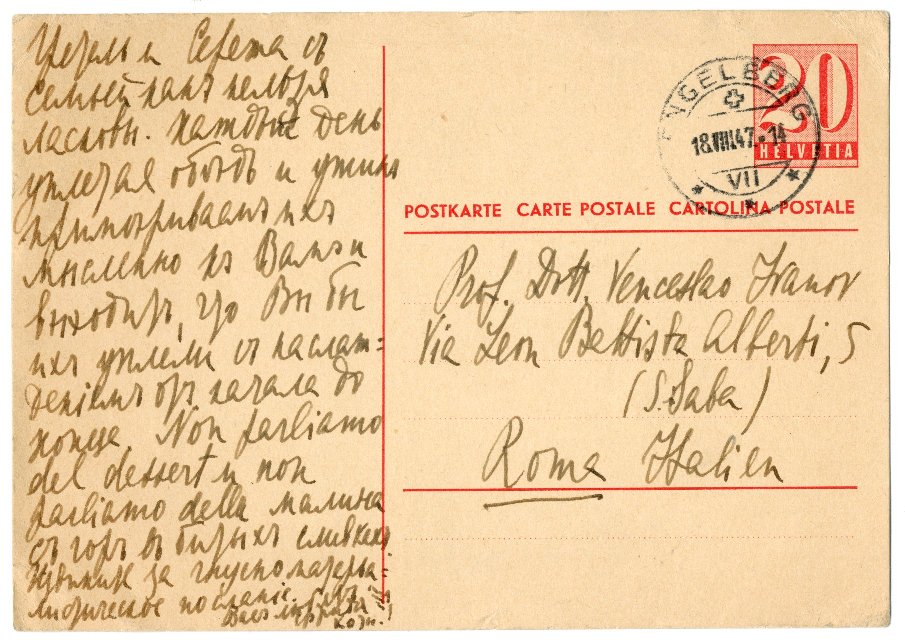 и Сережа съ
семьей какъ нельзя
ласковы. Каждый день
уплетая обѣдъ и ужинъ
примѣриваемъ ихъ
мысленно къ Вамъ и
выходитъ, что Вы бы
ихъ уплели съ наслаж=
деніемъ отъ начала до
конца. Non parliamo
del dessert'и non
parliamo della малина
съ горъ въ битыхъ сливкахъ.
Извиняюсь за гнусно матерья-
листическое посланіе.
20
HELVETIA
ENGELBERG
18.VIII.47.-14
VII
POSTKARTE CARTE POSTALE CARTOLINA POSTALE
Prof. Dott. Venceslao Ivanov
Via Leon Battista Alberti, 5
(S. Saba)
Roma Italien